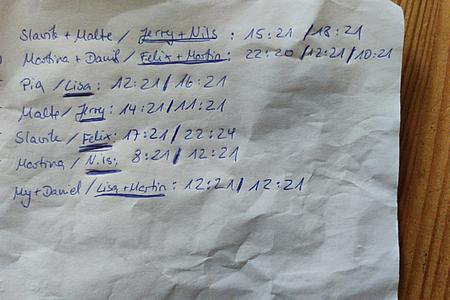 Slavik + Malte / Jerry + Nils : 15:21 / 18:21
Martina + Daniel / Felix + Martin : 22:20 / 12:21 / 10:21
Pia / Lisa : 12:21 / 16:21
Malte / Jerry : 14:21 / 11:21
Slavik / Felix : 17:21 / 22:24
Martina / Nils : 8:21 / 12:21
My + Daniel / Lisa + Martin : 12:21 / 12:21